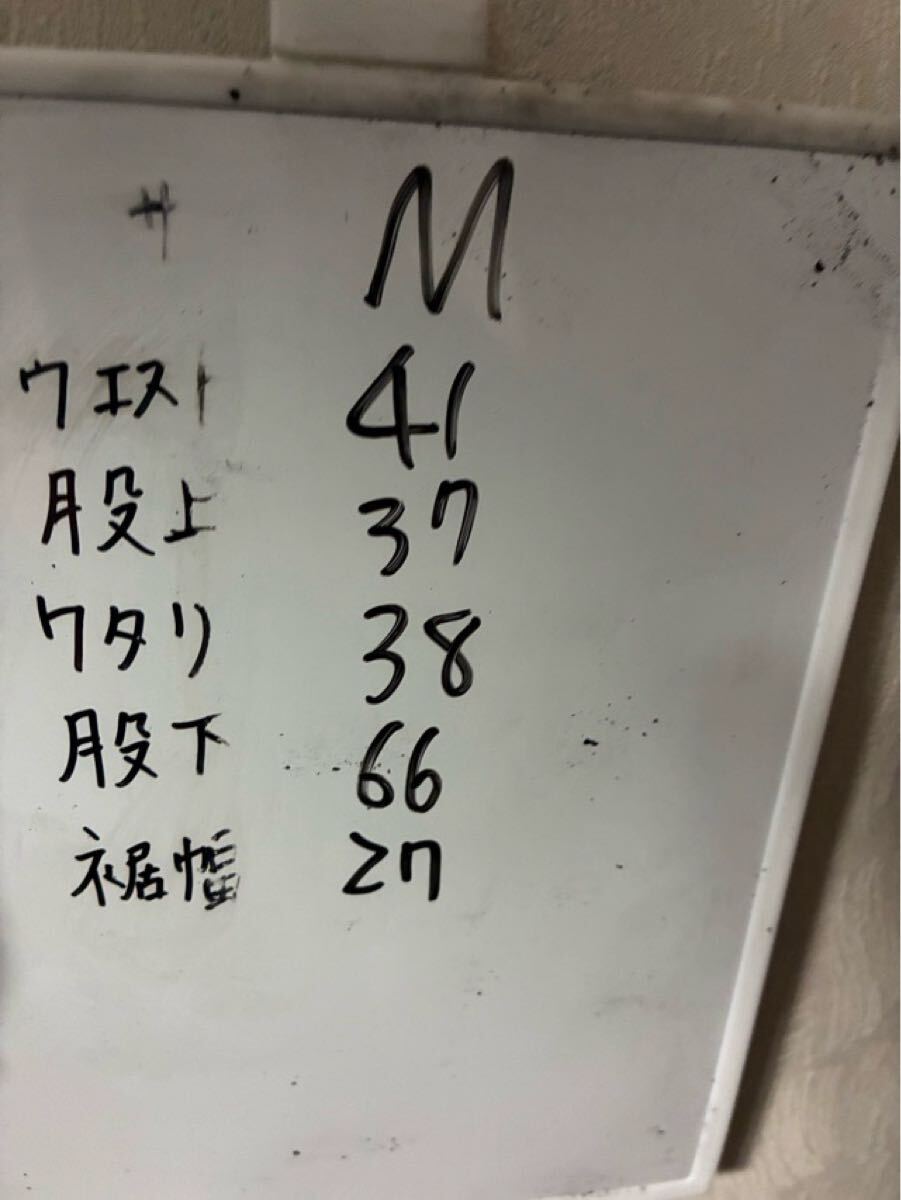 サ M
ウエスト 41
股上 37
ワタリ 38
股下 66
裾幅 27